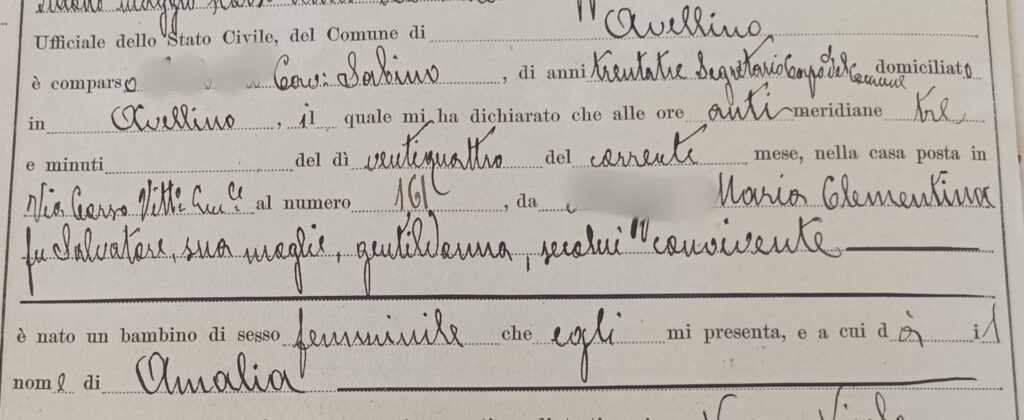 Ufficiale dello Stato Civile, del Comune di Avellino
è comparso Cav: Sabino, di anni trentatre Segretario Capo del Comune domiciliato
in Avellino, il quale mi ha dichiarato che alle ore anti meridiane tre
e minuti del dì ventiquattro del corrente mese, nella casa posta in
Via Corso Vitt. Em. al numero 161, da Maria Clementina
fu Salvatore, sua moglie, gentildonna, secolui convivente
è nato un bambino di sesso femminile che egli mi presenta, e a cui dà il
nome di Amalia